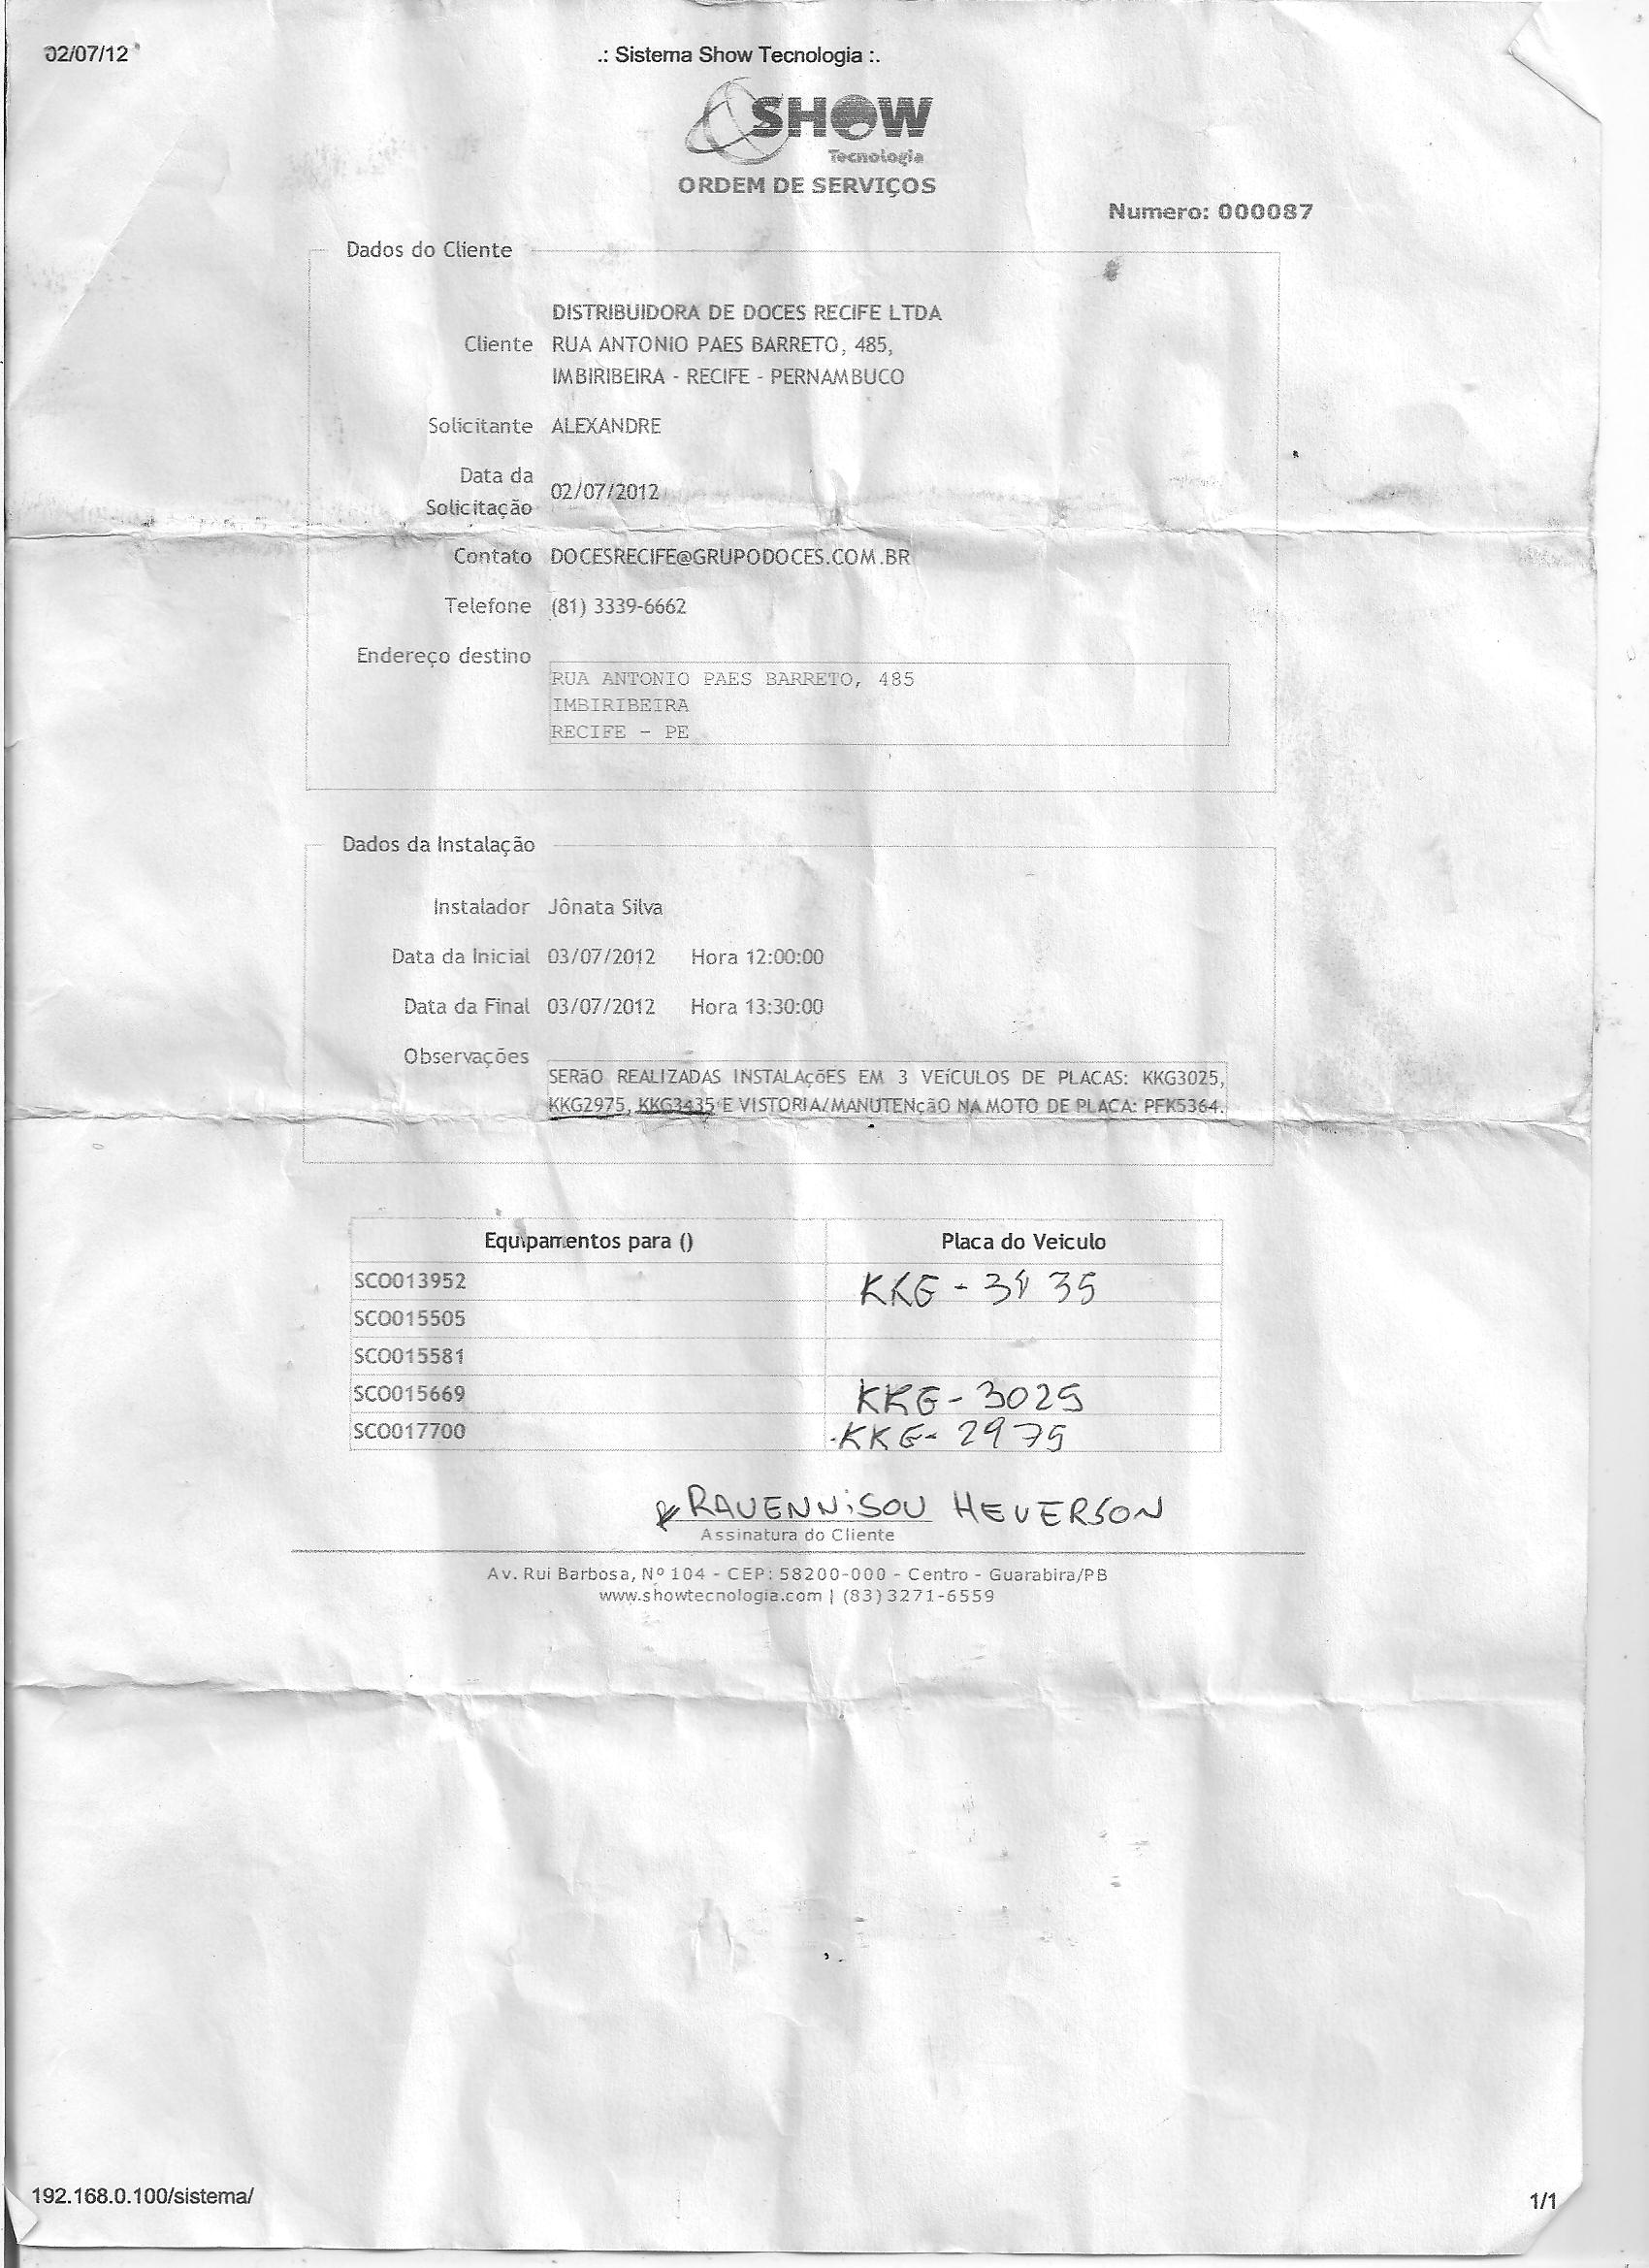 02/07/12
.: Sistema Show Tecnologia :.
SHOW
Tecnologia
ORDEM DE SERVIÇOS
Numero: 000087
Dados do Cliente
DISTRIBUIDORA DE DOCES RECIFE LTDA
Cliente RUA ANTONIO PAES BARRETO, 485,
IMBIRIBEIRA - RECIFE - PERNAMBUCO
Solicitante ALEXANDRE
Data da
Solicitação 02/07/2012
Contato DOCESRECIFE@GRUPODOCES.COM.BR
Telefone (81) 3339-6662
Endereço destino
RUA ANTONIO PAES BARRETO, 485
IMBIRIBEIRA
RECIFE - PE
Dados da Instalação
Instalador Jônata Silva
Data da Inicial 03/07/2012 Hora 12:00:00
Data da Final 03/07/2012 Hora 13:30:00
Observações
SERãO REALIZADAS INSTALAçõES EM 3 VEíCULOS DE PLACAS: KKG3025,
KKG2975, KKG3435 E VISTORIA/MANUTENçãO NA MOTO DE PLACA: PFK5364.
Equipamentos para () Placa do Veiculo
SCO013952 KKG - 3435
SCO015505
SCO015581
SCO015669 KKG - 3025
SCO017700 KKG - 2975
RAVENNISOU HEVERSON
Assinatura do Cliente
Av. Rui Barbosa, Nº 104 - CEP: 58200-000 - Centro - Guarabira/PB
www.showtecnologia.com | (83) 3271-6559
192.168.0.100/sistema/
1/1